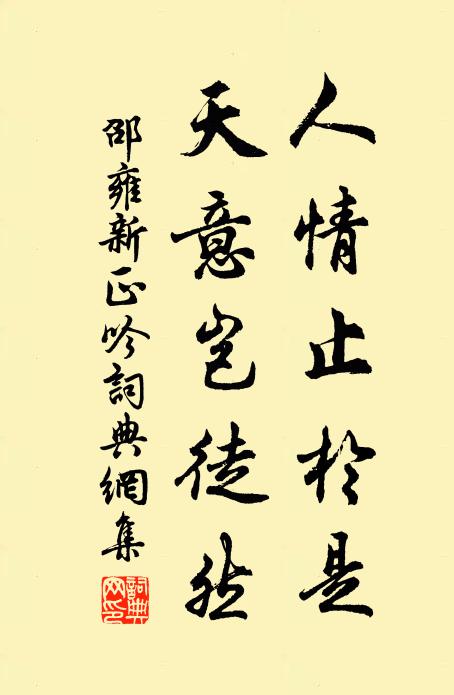 人情止於是
天意豈徒然
邵雍新正吟詞典網集
詞典網印